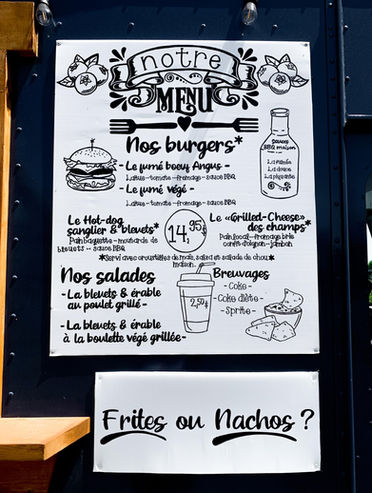 notre
MENU
Nos burgers*
- Le fumé boeuf Angus -
Laitue - tomate - fromage - sauce BBQ
- Le fumé végé -
Laitue - tomate - fromage - sauce BBQ
sauces
BBQ maison
La fumée
La douce
La piquante
Le Hot-dog
sanglier & bleuets*
Pain baguette - moutarde de
bleuets - sauce BBQ
14,95$
Le «Grilled-Cheese»
des champs*
Pain focal - fromage brie
confit d'oignon - jambon
*Servi avec croustilles de maïs, salsa et salade de chou
maison.
Nos salades
- La bleuets & érable
au poulet grillé -
- La bleuets & érable
à la boulette végé grillée -
2,50$
Breuvages
- Coke -
- Coke diète -
- Sprite -
Frites ou Nachos ?